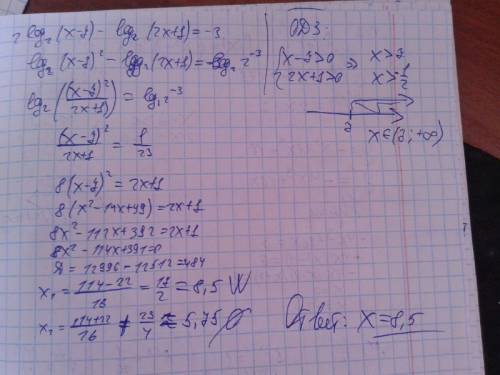 2 log₂(x-7) - log₂(2x+1) = -3
log₂(x-7)² - log₂(2x+1) = log₂ 2⁻³
log₂((x-7)²/(2x+1)) = log₂ 2⁻³
(x-7)²/(2x+1) = 1/2³
8(x-7)² = 2x+1
8(x²-14x+49) = 2x+1
8x²-112x+392=2x+1
8x²-114x+391=0
Д = 12996-12512=484
x₁ = (114-22)/16 = 17/2 = 8,5
x₂ = (114+22)/16 ≠ 23/4 = 5,75 ∅
ОДЗ:
{x-7>0 ⇒ x>7
{2x+1>0 x>-1/2
7
x∈(7; +∞)
Ответ: x=8,5